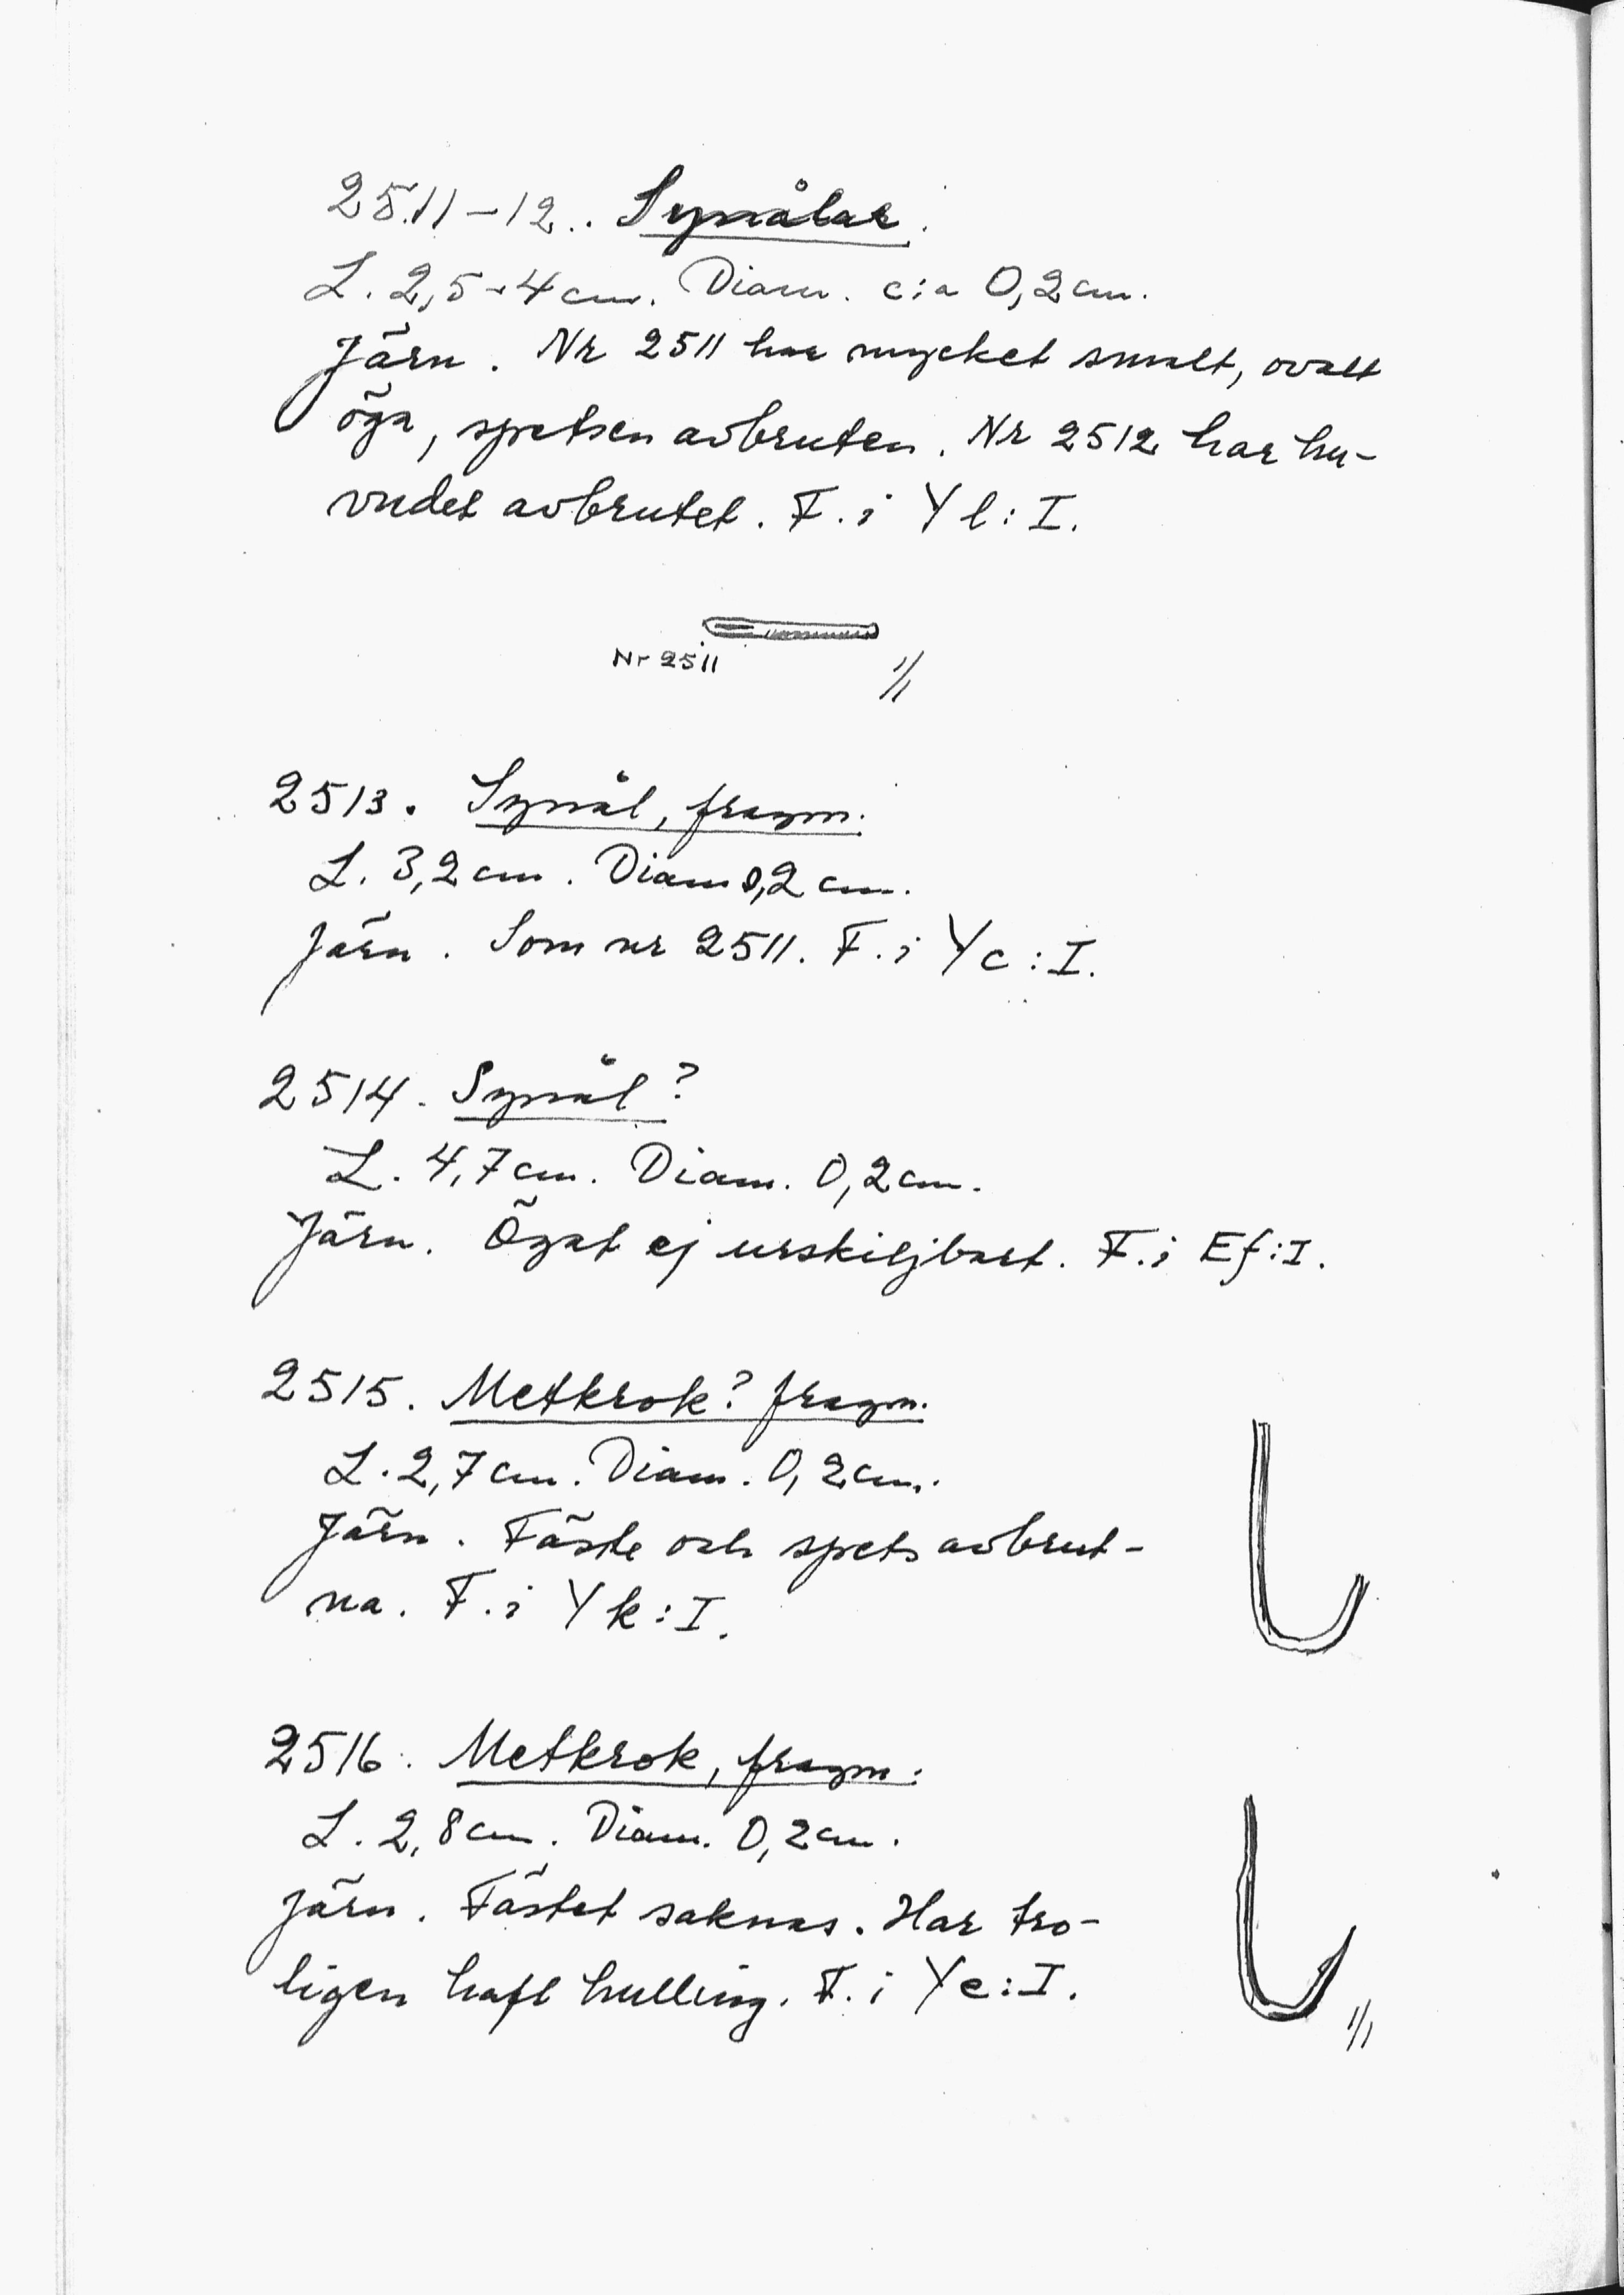 2511-12. Synålar.
L. 2,5-4 cm. Diam. c:a 0,2 cm.
Järn. Nr 2511 har mycket smalt, ovalt
öga, spetsen avbruten. Nr 2512 har hu-
vudet avbrutet. F. i Y l : I.
Nr 2511
1/1
2513. Synål, fragm.
L. 3,2 cm. Diam 0,2 cm.
Järn. Som nr 2511. F. i Y c : I.
2514. Synål?
L. 4,7 cm. Diam. 0,2 cm.
Järn. Ögat ej urskiljbart. F. i Ef : I.
2515. Metkrok? fragm.
L. 2,7 cm. Diam. 0,2 cm.
Järn. Fäste och spets avbrut-
na. F. i Y k : I.
2516. Metkrok, fragm.
L. 2,8 cm. Diam. 0,2 cm.
Järn. Fästet saknas. Har tro-
ligen haft hulling. F. i Y e : I.
1/1